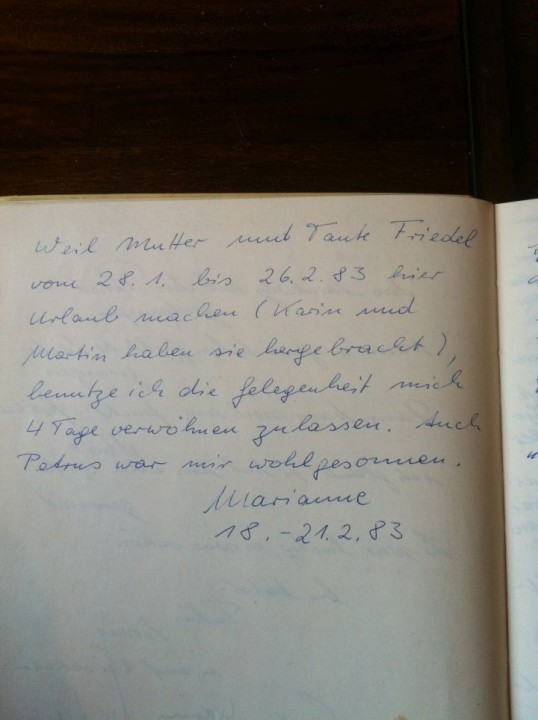 Weil Mutter und Tante Friedel
vom 28.1. bis 26.2.83 hier
Urlaub machen (Karin und
Martin haben sie hergebracht),
benutze ich die Gelegenheit mich
4 Tage verwöhnen zulassen. Auch
Petrus war mir wohlgesonnen.
Marianne
18.-21.2.83